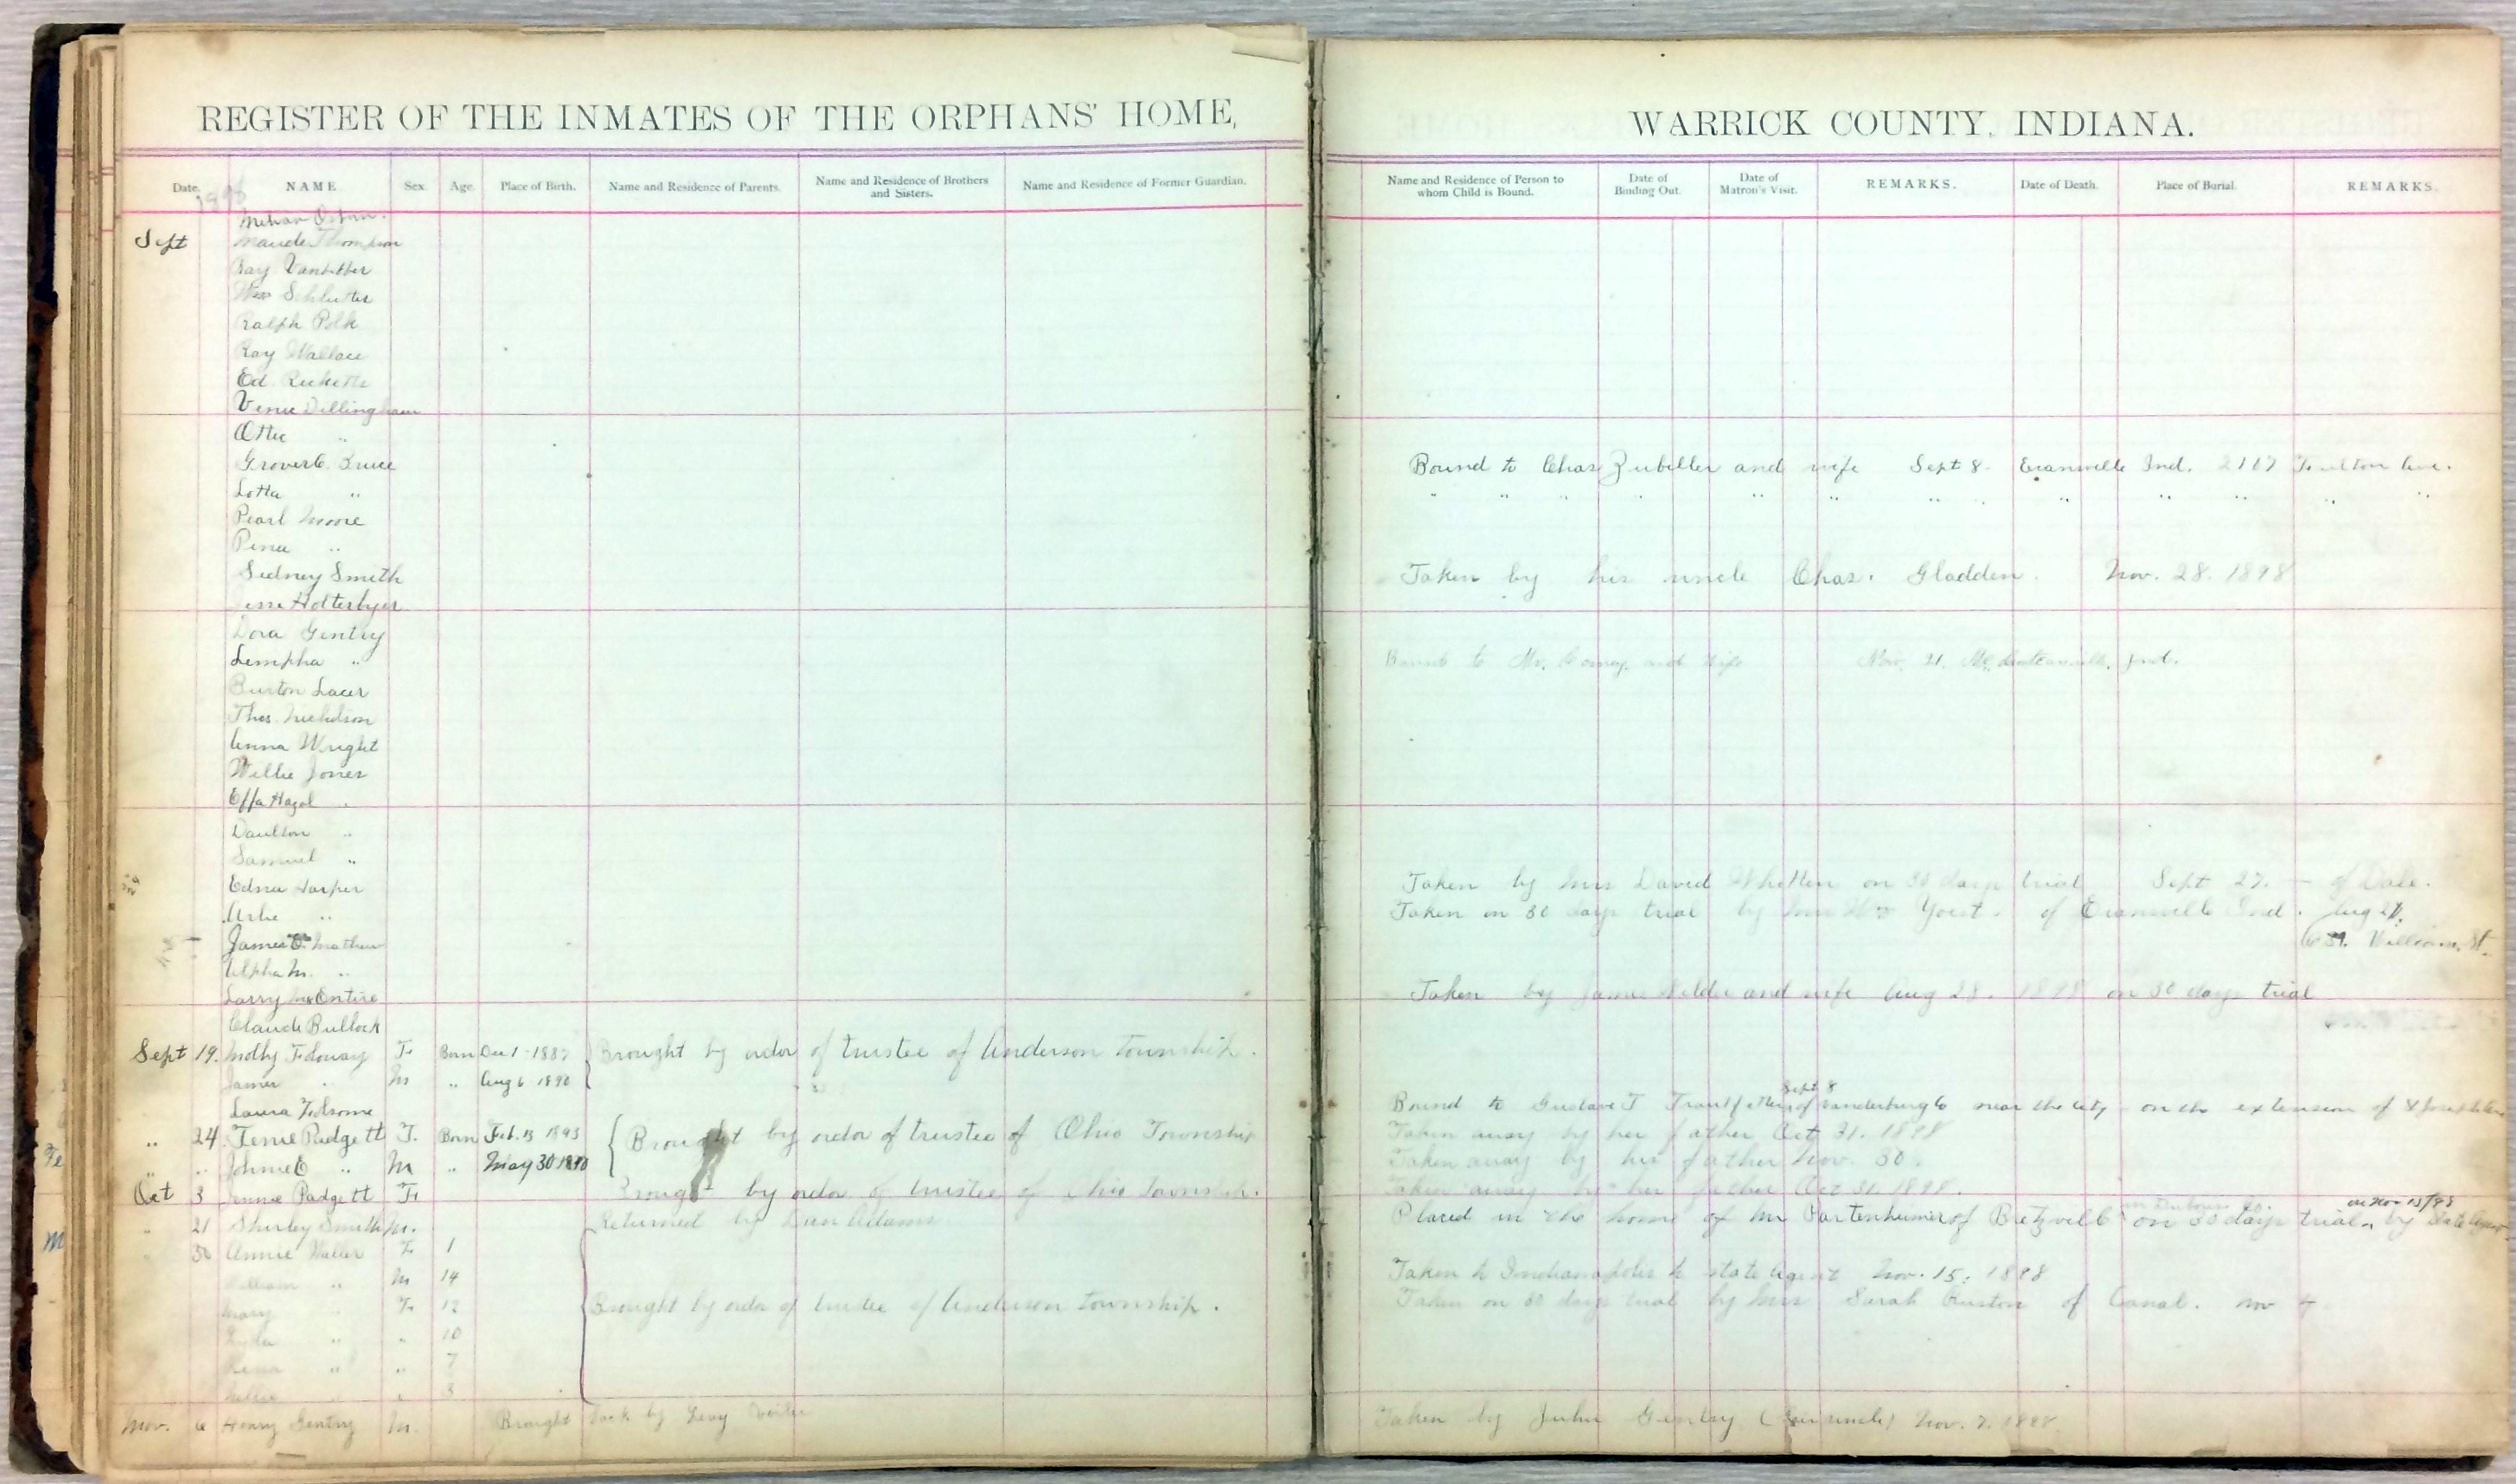 REGISTER OF THE INMATES OF THE ORPHANS' HOME,
WARRICK COUNTY, INDIANA.
Date. NAME Sex. Age. Place of Birth. Name and Residence of Parents. Name and Residence of Brothers and Sisters. Name and Residence of Former Guardian.
Name and Residence of Person to whom Child is Bound. Date of Binding Out. Date of Matron's Visit. REMARKS. Date of Death. Place of Burial. REMARKS.
1898
Sept Maude Thompson
Ray
Wm Schlutter
Ralph Polk
Ray Wallace
Ed Ricketts
Venie Dillingham
Ottie "
Grover C. Bruce Bound to Chas Zubiller and wife Sept 8 Evansville Ind. 2107 Fulton Ave.
Lotta " " " " " " " " " " " " " "
Pearl Moore
"
Sidney Smith Taken by his uncle Chas. Gladden. Nov. 28. 1898
Dora Gentry
Lempha " Bound to Mr. and Wife Nov. 21. Ind.
Burton Lacer
Thos. Nicholson
Anna Wright
Willie Jones
Effa Hazel "
Daulton "
Samuel "
Edna Harper Taken by Mrs David Whitten on 30 days trial Sept 27. - of Dale.
" Taken on 30 days trial by Mrs Wm Yoist. of Evansville Ind. Aug 27.
James Mathew William St.
Alpha M. "
Larry McEntire Taken by James Wilder and wife Aug 28. 1898 on 30 days trial
Claude Bullock
Sept 19. Molly F. Born Dec 1 1887 Brought by order of trustee of Anderson Township.
James " M " Aug 6 1890
Sept 8
Laura Folsome Bound to Gustave T of Vanderburg Co near the city on the extension of
" 24. Padgett F. Born Feb. 13 1893 Brought by order of trustee of Ohio Township Taken away by her father Oct 31. 1898
" " Johnie E " M " May 30 1890 Taken away by his father Nov. 30.
Oct 3 Jennie Padgett F Brought by order of trustee of Ohio Township. Taken away by her father Oct 31. 1898.
on Nov 15/98
" 21 Shirley Smith M. Returned by Dan Adams Placed in the home of Mr Partenheimer of Bretzville on 30 days trial by State Agent
" 30 Annie Waller F 1
William " M 14 Taken to Indianapolis to state Agent Nov. 15. 1898
Mary " F 12 Brought by order of trustee of Anderson township. Taken on 30 days trial by Mrs Sarah of Canal. Nov
" " 10
" " 7
" " 3
Nov. 6 Henry Gentry M. Brought back by Levy Taken by John Gentry (his uncle) Nov. 7. 1898.